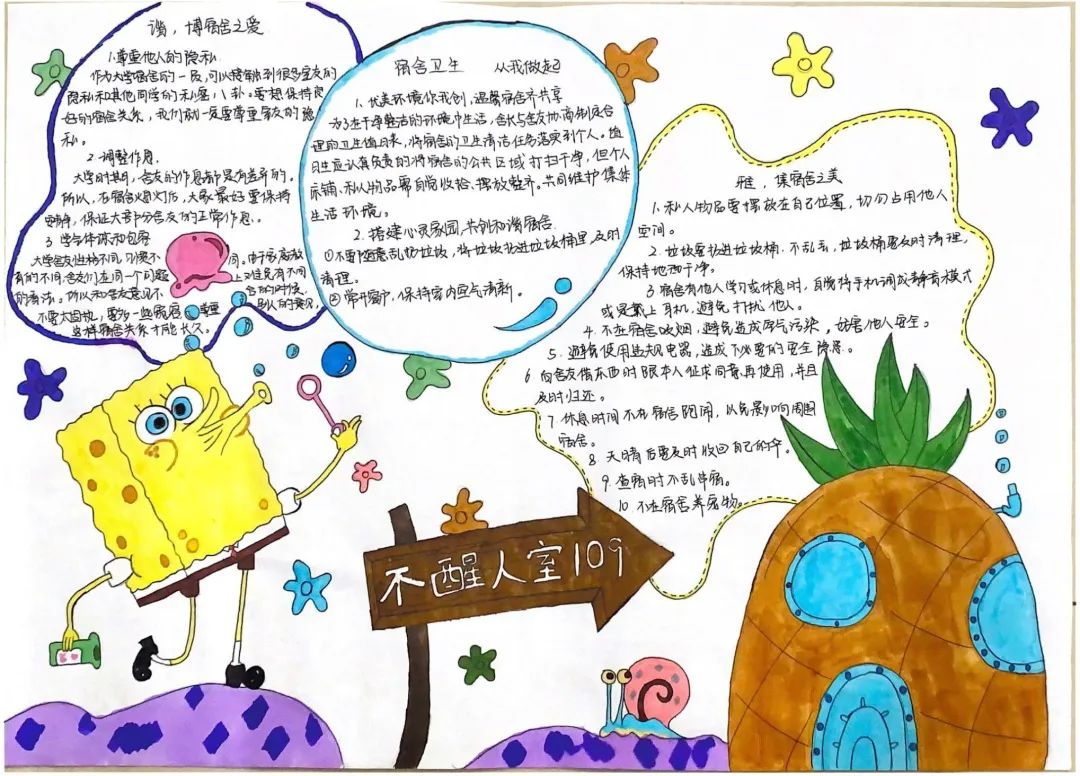 谐，博宿舍之爱
1.尊重他人的隐私
作为大学宿舍的一员，可以接触到很多室友的
隐私和其他同学的私密八卦。要想保持良
好的宿舍关系，我们就一定要尊重室友的隐
私。
2.调整作息.
大学时期，舍友的作息都是有差异的。
所以，在宿舍熄灯后，大家最好要保持
安静，保证大部分舍友的正常作息。
3 学会体谅和包容
大学舍友性格不同，习惯不同。由于家庭教
有的不同，舍友们在同一个问题上难免有不同
的看法。所以和舍友意见不合的时候，
不要太固执，要多一些宽容，尊重别人的意见，
这样宿舍关系才能长久。
宿舍卫生 从我做起
1. 优美环境你我创，温馨宿舍齐共享
为了在干净整洁的环境中生活，舍长与舍友协商制定合
理的卫生值日表，将宿舍的卫生清洁任务落实到个人。值
日生应认真负责的将宿舍的公共区域打扫干净，但个人
床铺、私人物品需自觉收拾、摆放整齐。共同维护集体
生活环境。
2. 搭建心灵家园，共创和谐宿舍
①不要随意乱扔垃圾，将垃圾扔进垃圾桶里，及时
清理。
②常开窗户，保持室内空气清新。
雅，集宿舍之美
1.私人物品要摆放在自己位置，切勿占用他人
空间。
2. 垃圾要扔进垃圾桶.不乱丢，垃圾桶要及时清理，
保持地面干净。
3 宿舍有他人学习或休息时，自觉将手机调成静音模式
或是戴上耳机，避免打扰他人。
4. 不在宿舍吸烟，避免造成空气污染，妨害他人安全。
5. 避免使用违规电器，造成不必要的安全隐患。
6 向舍友借东西时跟本人征求同意再使用，并且
及时归还。
7 休息时间不在宿舍吵闹，以免影响周围
宿舍。
8 天晴后要及时收回自己的伞。
9. 查宿时不乱串宿。
10.不在宿舍养宠物。
不醒人室109